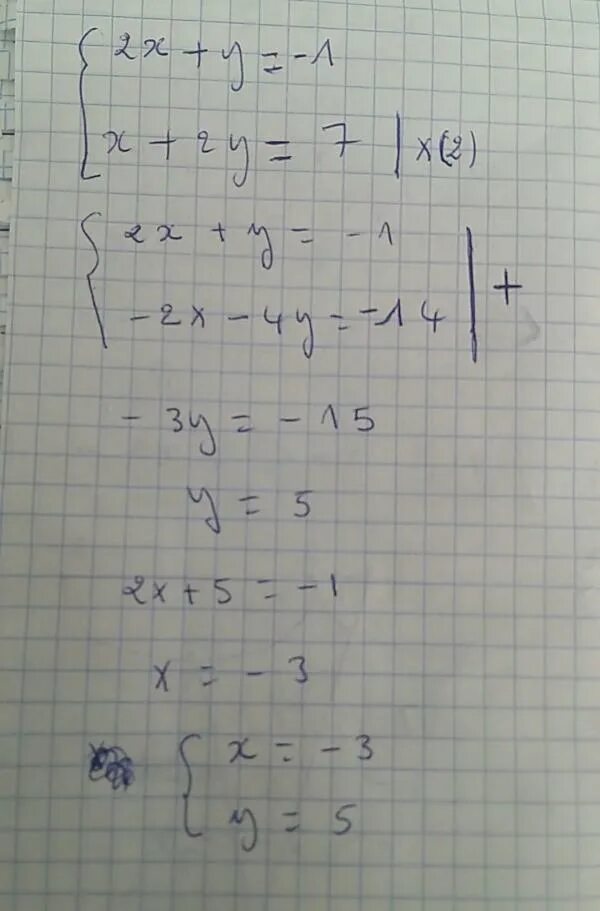 2x + y = -1
x + 2y = 7 | x(2)
2x + y = -1
-2x - 4y = -14 | +
- 3y = - 15
y = 5
2x + 5 = -1
x = - 3
x = - 3
y = 5